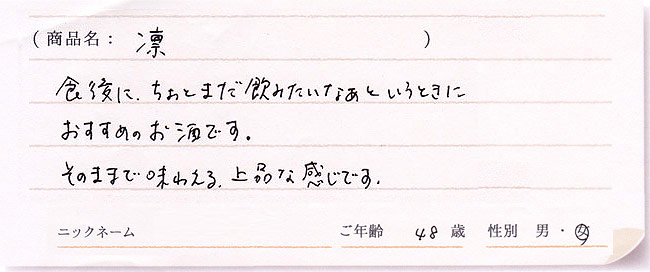 (商品名: 凛 )
食後に、ちょっとまだ飲みたいなあというときに
おすすめのお酒です。
そのままで味わえる、上品な感じです。
ニックネーム ご年齢 48 歳 性別 男・女